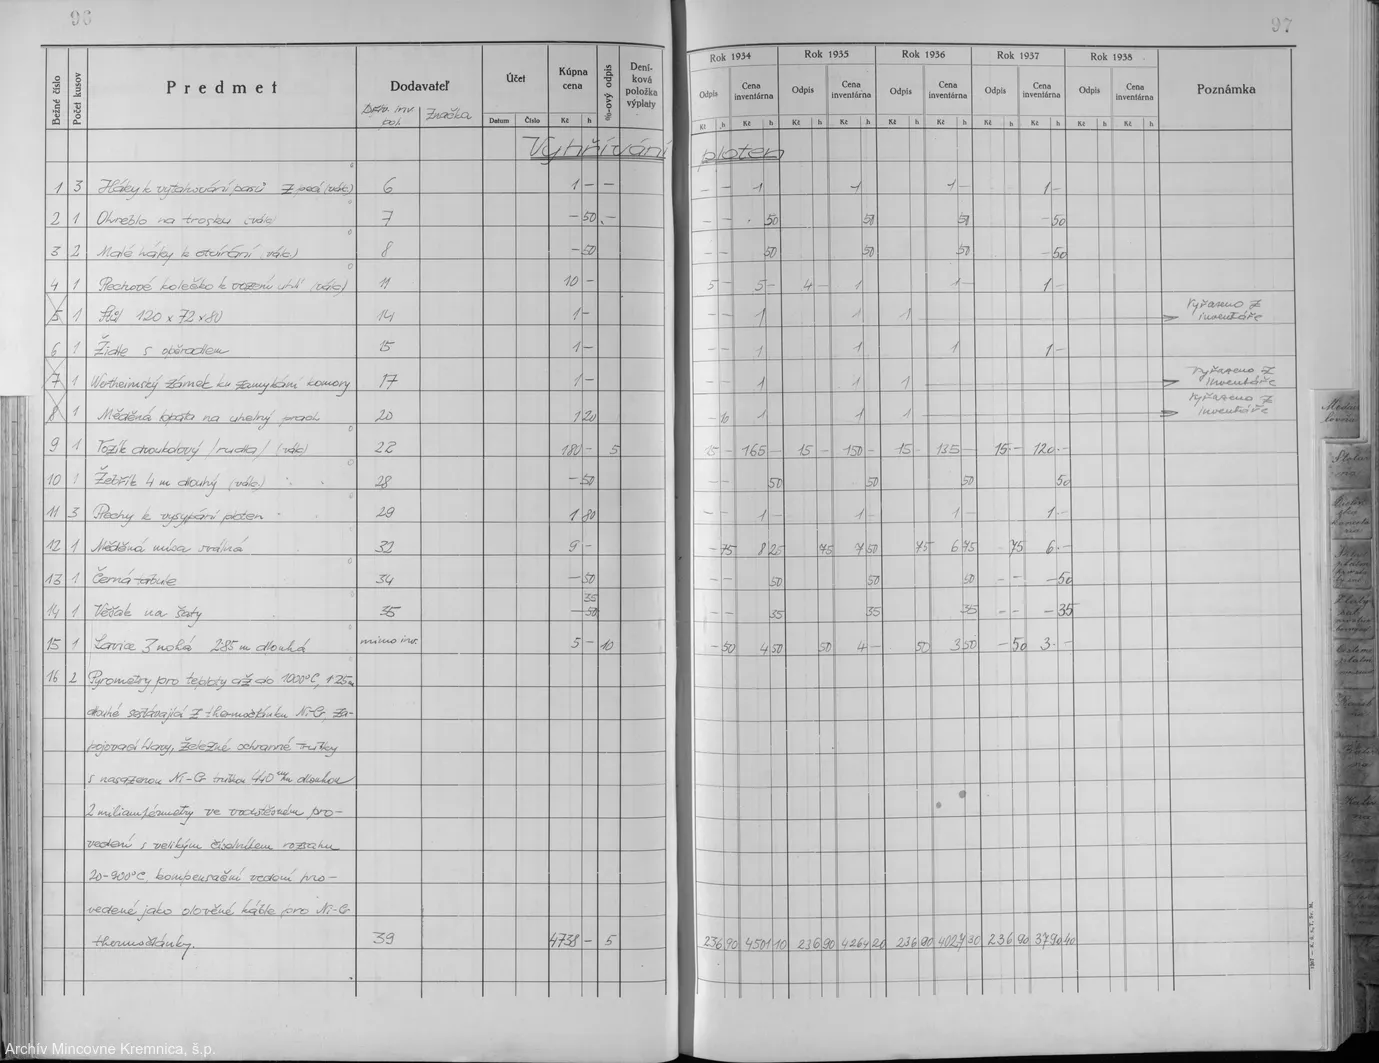 96
97
Bežné číslo Počet kusov Predmet Dodavateľ Účet Kúpna cena %-ový odpis Deníková položka výplaty Rok 1934 Rok 1935 Rok 1936 Rok 1937 Rok 1938 Poznámka
Značka Datum Číslo Kč h
Odpis Cena inventárna Odpis Cena inventárna Odpis Cena inventárna Odpis Cena inventárna Odpis Cena inventárna
Kč h Kč h Kč h Kč h Kč h Kč h Kč h Kč h Kč h Kč h
Vyhřívání ploten
1 3 Háky k vytahování pasů z pecí (vále) 6 1 – – – – 1 1 1 – 1 –
2 1 Ohreblo na trosku 7 – 50 – – – 50 50 50 – 50
3 2 Malé háky k otvírání 8 – 50 50 50 50 – 50
4 1 Plechové kolečko k vození uhlí 11 10 – 5 – 5 – 4 – 1 1 – 1 –
5 1 Stůl 120 x 72 x 80 14 1 – 1 1 1 Vyřazeno z inventáře
6 1 Židle s opěradlem 15 1 – – – 1 1 1 1 –
7 1 Wertheimský zámek ku zamykání komory 17 1 – 1 1 1 Vyřazeno z inventáře
8 1 Měděná lopata na uhelný prach 20 1 20 – 6 1 1 1 Vyřazeno z inventáře
9 1 Vozík dvoukolový /rudla/ 22 180 – 5 15 – 165 – 15 – 150 – 15 – 135 – 15 – 120 –
10 1 Žebřík 4 m dlouhý 28 – 50 50 50 50 50
11 3 Plechy k vysypání ploten 29 1 80 1 – 1 – 1 – 1 –
12 1 Měděná mísa oválná 32 9 – – 75 8 25 75 7 50 75 6 75 75 6 –
13 1 Černá tabule 34 – 50 – – 50 50 50 – – – 50
14 1 Věšák na šaty 35 – 35 50 – – 35 35 35 – – – 35
15 1 Lavice 3 nohá 285 m dlouhá mimo inv. 5 – 10 – 50 4 50 50 4 – 50 3 50 – 50 3 –
16 2 Pyrometry pro teploty až do 1000°C, 1.25m
dlouhé sestávající z thermočlánku Ni-Cr, za-
pojovací hlavy, železné ochranné trubky
s nasazenou Ni-Cr trubkou 440 mm dlouhou
2 miliampérmetry ve vodotěsném pro-
vedení s velikým číselníkem rozsahu
20-900°C, kompensační vedení pro-
vedené jako olověné káble pro Ni-Cr
thermočlánky. 39 4738 – 5 236 90 4501 10 236 90 4264 20 236 90 4027 30 236 90 3790 40
Archív Mincovne Kremnica, š.p.